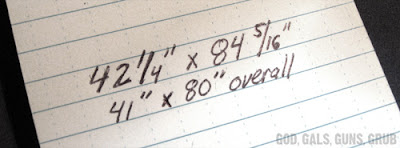 42 1/4" x 84 5/16"
41" x 80" overall
GOD, GALS, GUNS, GRUB